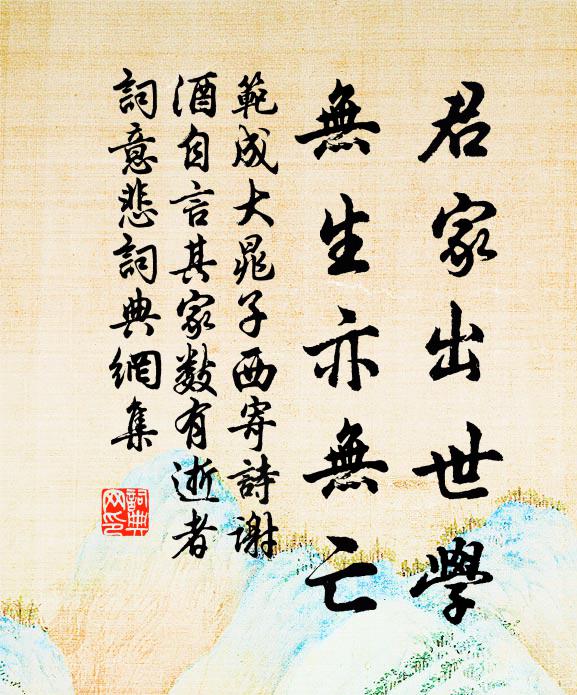 君家出世學
無生亦無亡
範成大晁子西寄詩謝
酒自言其家數有逝者
詞意悲詞典網集
詞典網印